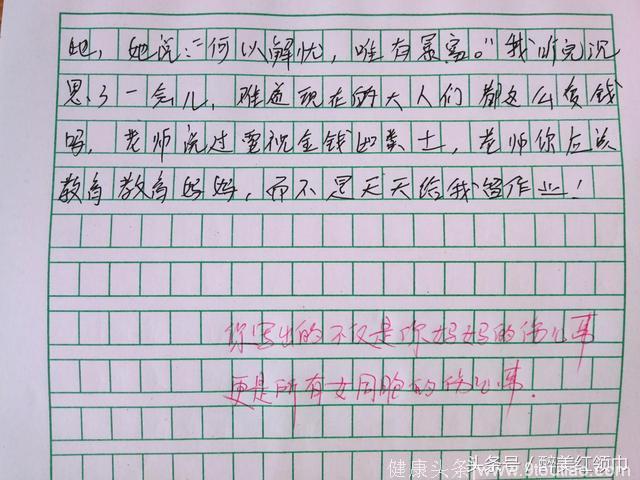 她，她说："何以解忧，唯有暴富。"我听完沉
思了一会儿，难道现在的大人们都这么爱钱
吗，老师说过要视金钱如粪土，老师你应该
教育教育妈妈，而不是天天给我留作业！
你写出的不仅是你妈妈的伤心事
更是所有女同胞的伤心事.
健康头条 www.9itoutiao.com
头条号/醉美红领巾